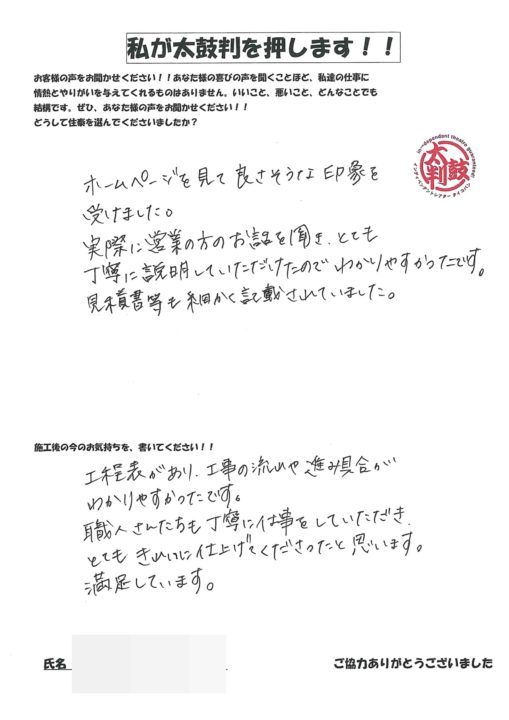 私が太鼓判を押します！！
お客様の声をお聞かせください！！あなた様の喜びの声を聞くことほど、私達の仕事に
情熱とやりがいを与えてくれるものはありません。いいこと、悪いこと、どんなことでも
結構です。ぜひ、あなた様の声をお聞かせください！！
どうして住泰を選んでくださいましたか？
in-dependent theatre guarantee
太鼓判
インディペンデントシアター タイコバン
ホームページを見て良さそうな印象を
受けました。
実際に営業の方のお話を聞き、とても
丁寧に説明していただけたのでわかりやすかったです。
見積書等も細かく記載されていました。
施工後の今のお気持ちを、書いてください！！
工程表があり、工事の流れや進み具合が
わかりやすかったです。
職人さんたちも丁寧に仕事をしていただき、
とてもきれいに仕上げてくださったと思います。
満足しています。
氏名
ご協力ありがとうございました